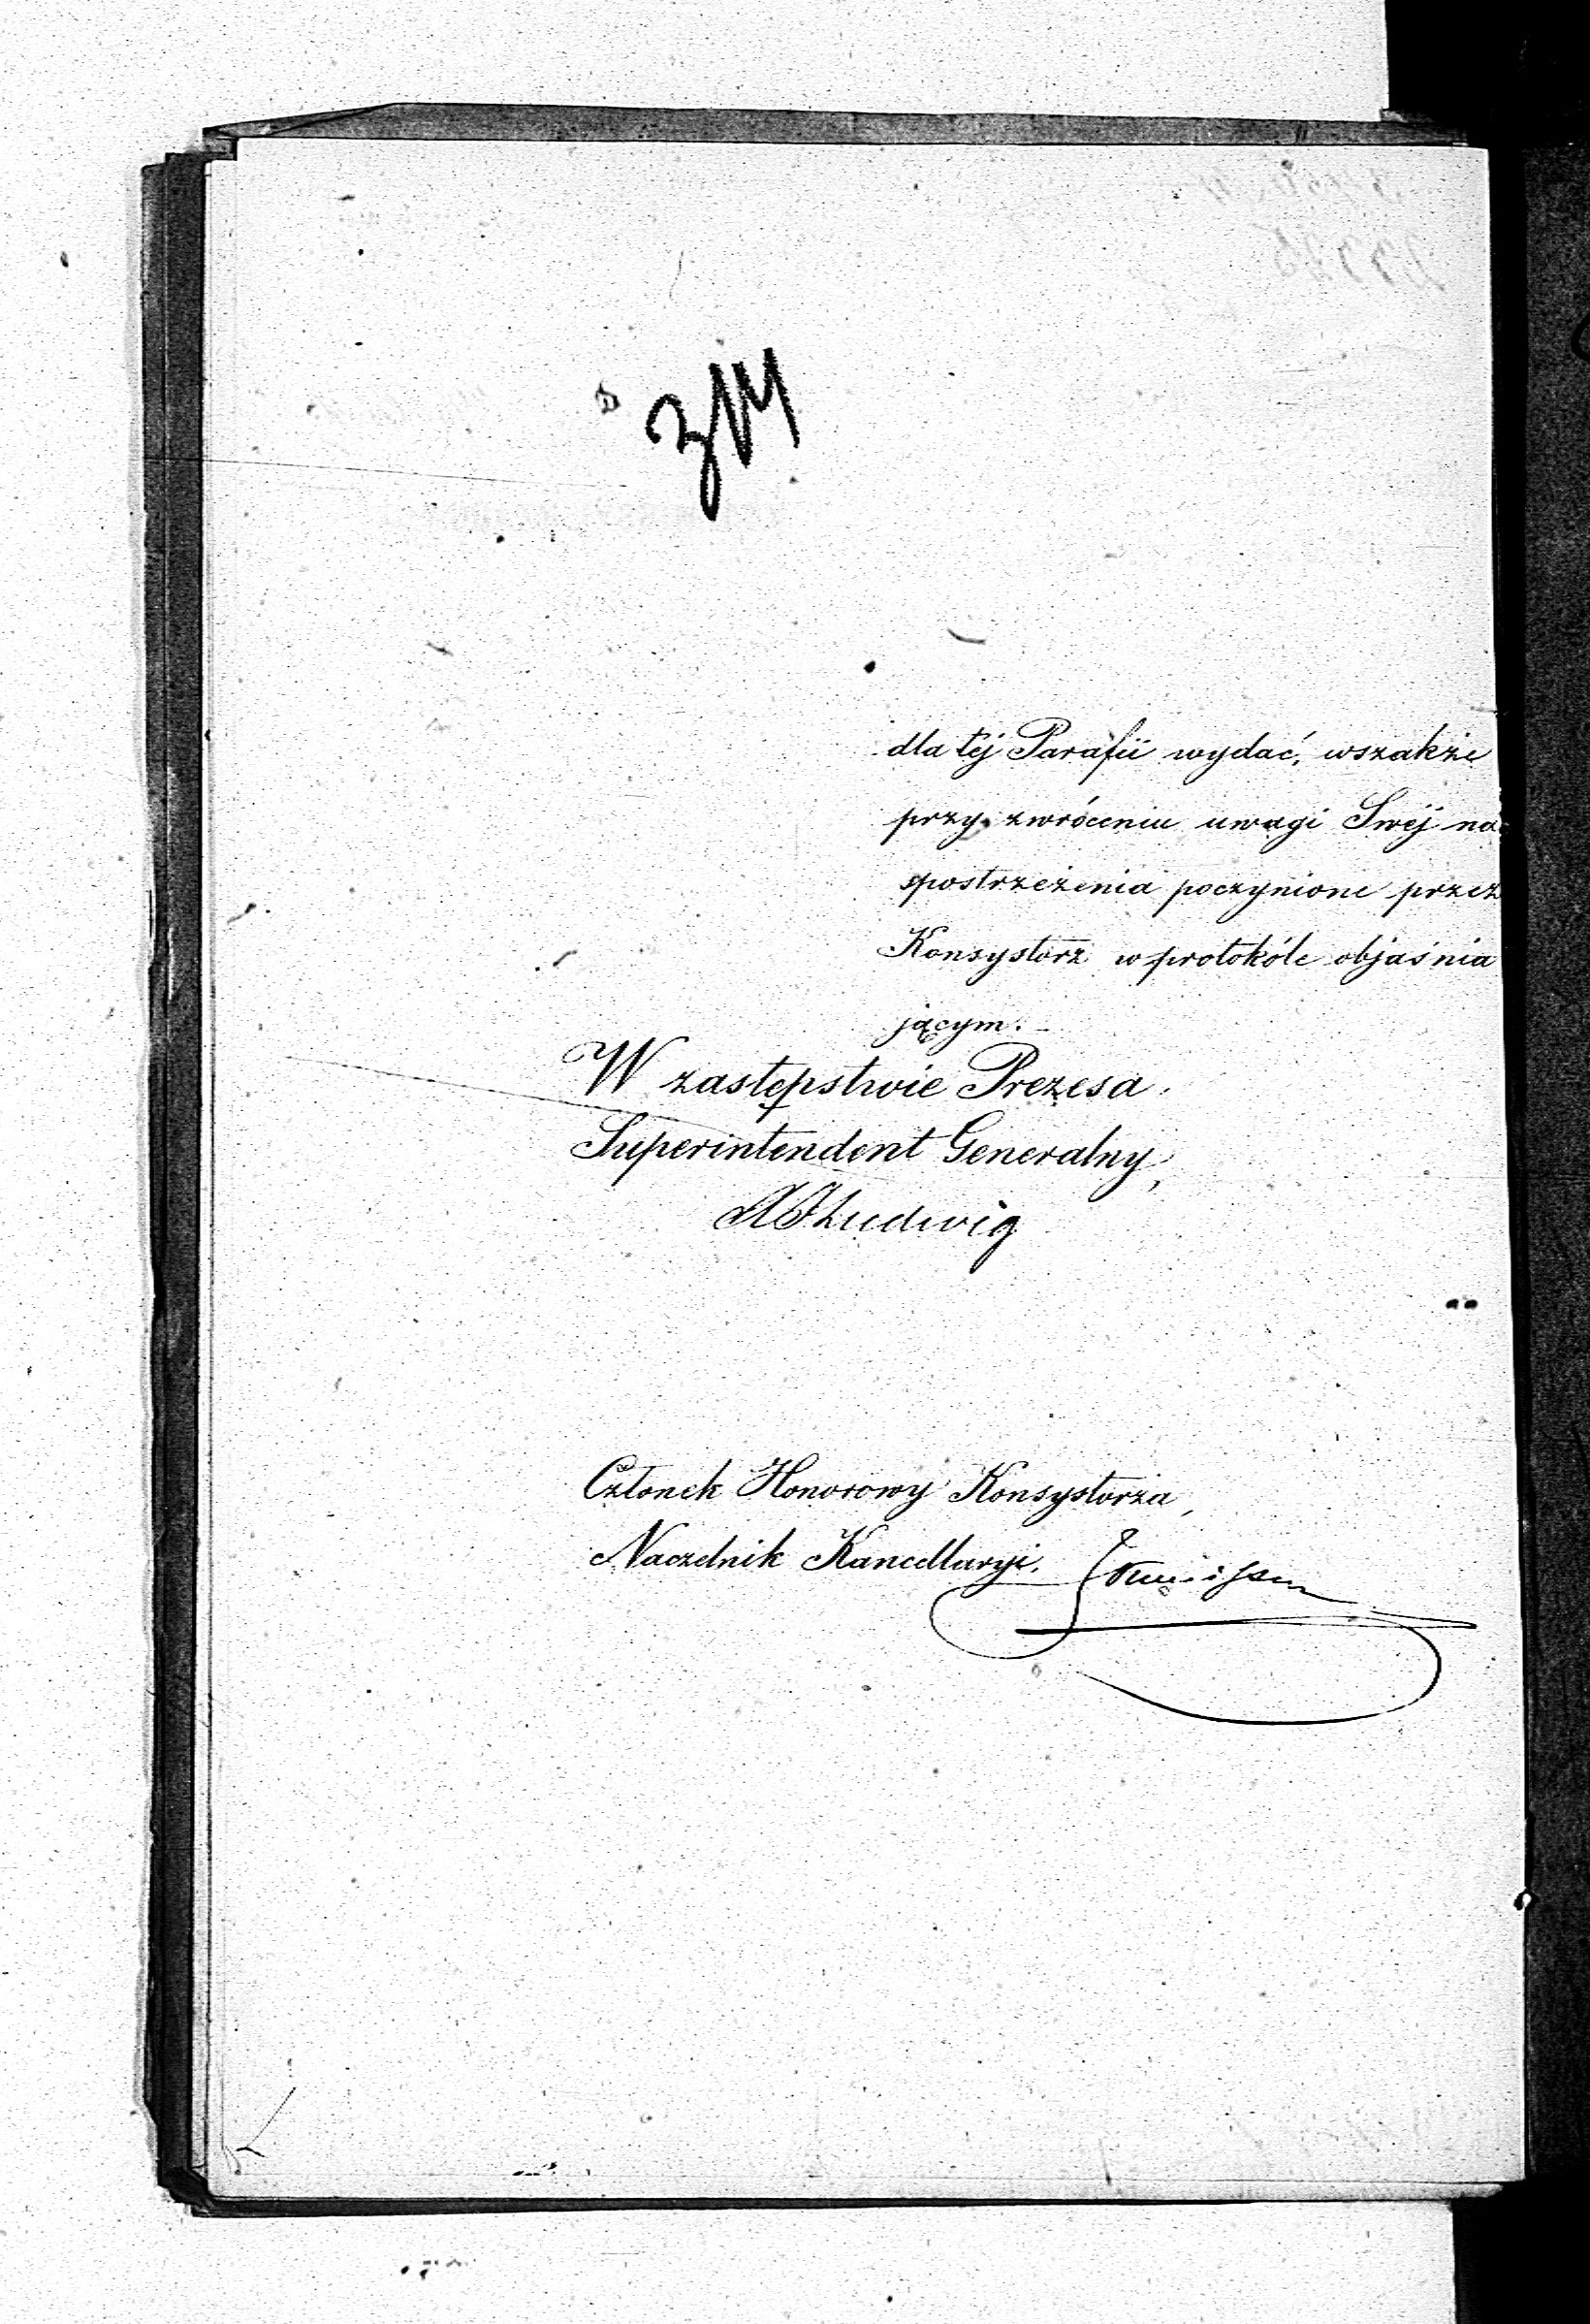 dla téj Parafii wydać, wszakże
przy zwróceniu uwagi Swéj na
spostrzeżenia poczynione przez
Konsystorz w protokóle objaśnia
jącym.
W zastępstwie Prezesa
Superintendent Generalny,
Ludwig
Członek Honorowy Konsystorza,
Naczelnik Kancellaryi.